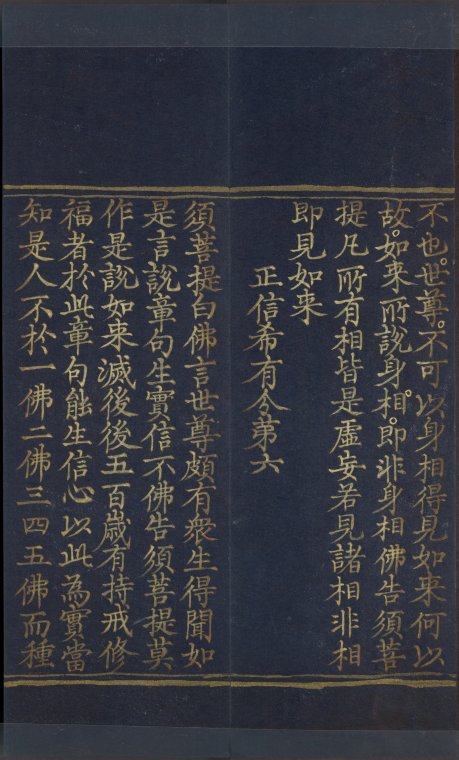 不也。世尊。不可以身相得見如来何以
故。如来所說身相。即非身相佛告須菩
提凡所有相皆是虛妄若見諸相非相
即見如来
正信希有分第六
須菩提白佛言世尊頗有衆生得聞如
是言說章句生實信不佛告須菩提莫
作是說如来滅後後五百歲有持戒修
福者於此章句能生信心以此為實當
知是人不於一佛二佛三四五佛而種